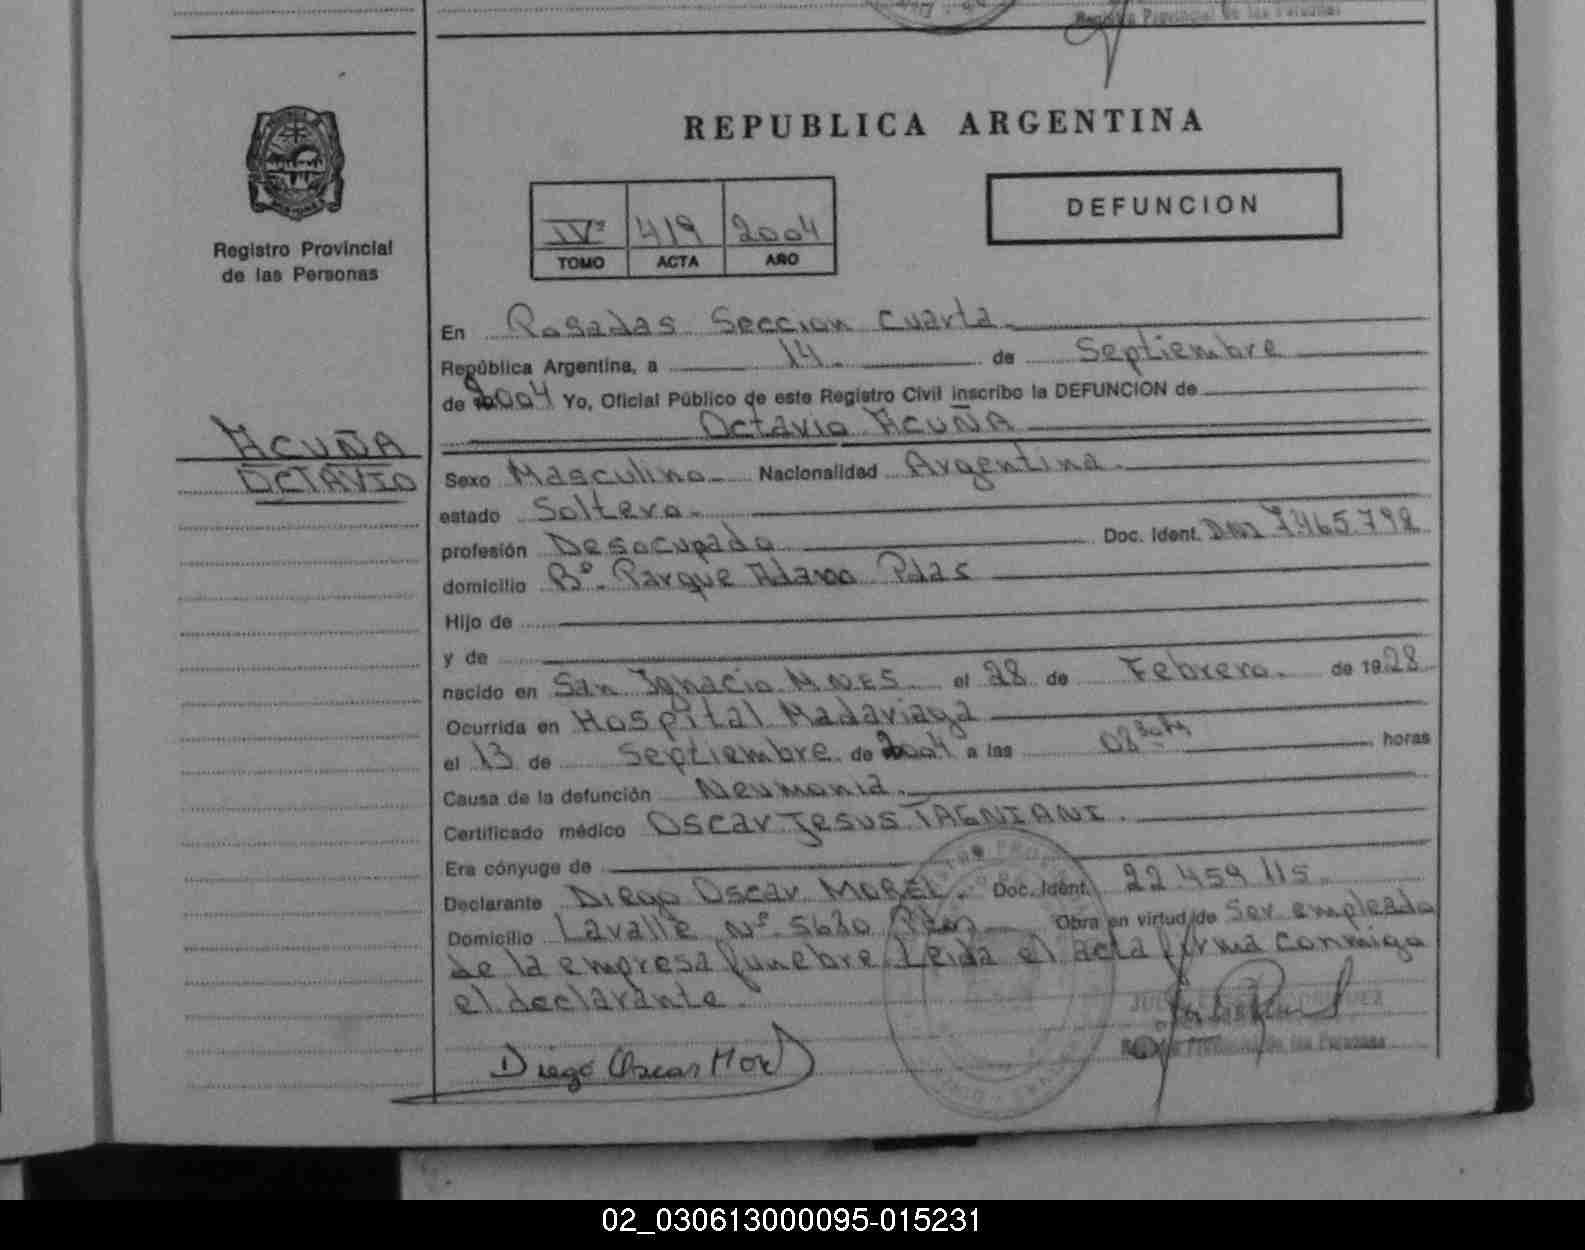 Registro Provincial de las Personas
REPUBLICA ARGENTINA
DEFUNCION
IVº 419 2004
TOMO ACTA AÑO
Registro Provincial
de las Personas
ACUÑA
OCTAVIO
En Posadas Seccion Cuarta
República Argentina, a 14 de Septiembre
de 2004 Yo, Oficial Público de este Registro Civil inscribo la DEFUNCION de
Octavio ACUÑA
Sexo Masculino Nacionalidad Argentina.
estado Soltero.
profesión Desocupado Doc. Ident. DNI 7.465.798
domicilio Bº. Parque Adam Pdas
Hijo de
y de
nacido en San Ignacio MNES el 28 de Febrero. de 1928
Ocurrida en Hospital Madariaga
el 13 de Septiembre de 2004 a las 08 30 hs horas
Causa de la defunción Neumonia.
Certificado médico Oscar Jesus TAGNIANI.
Era cónyuge de
Declarante Diego Oscar MOREL. Doc. Ident. 22.459.115
Domicilio Lavalle Nº 5680 Pdas Obra en virtud de Ser empleado
de la empresa funebre. Leida el acta firma conmigo
el declarante.
Diego Oscar Morel
Registro Provincial de las Personas
02_030613000095-015231